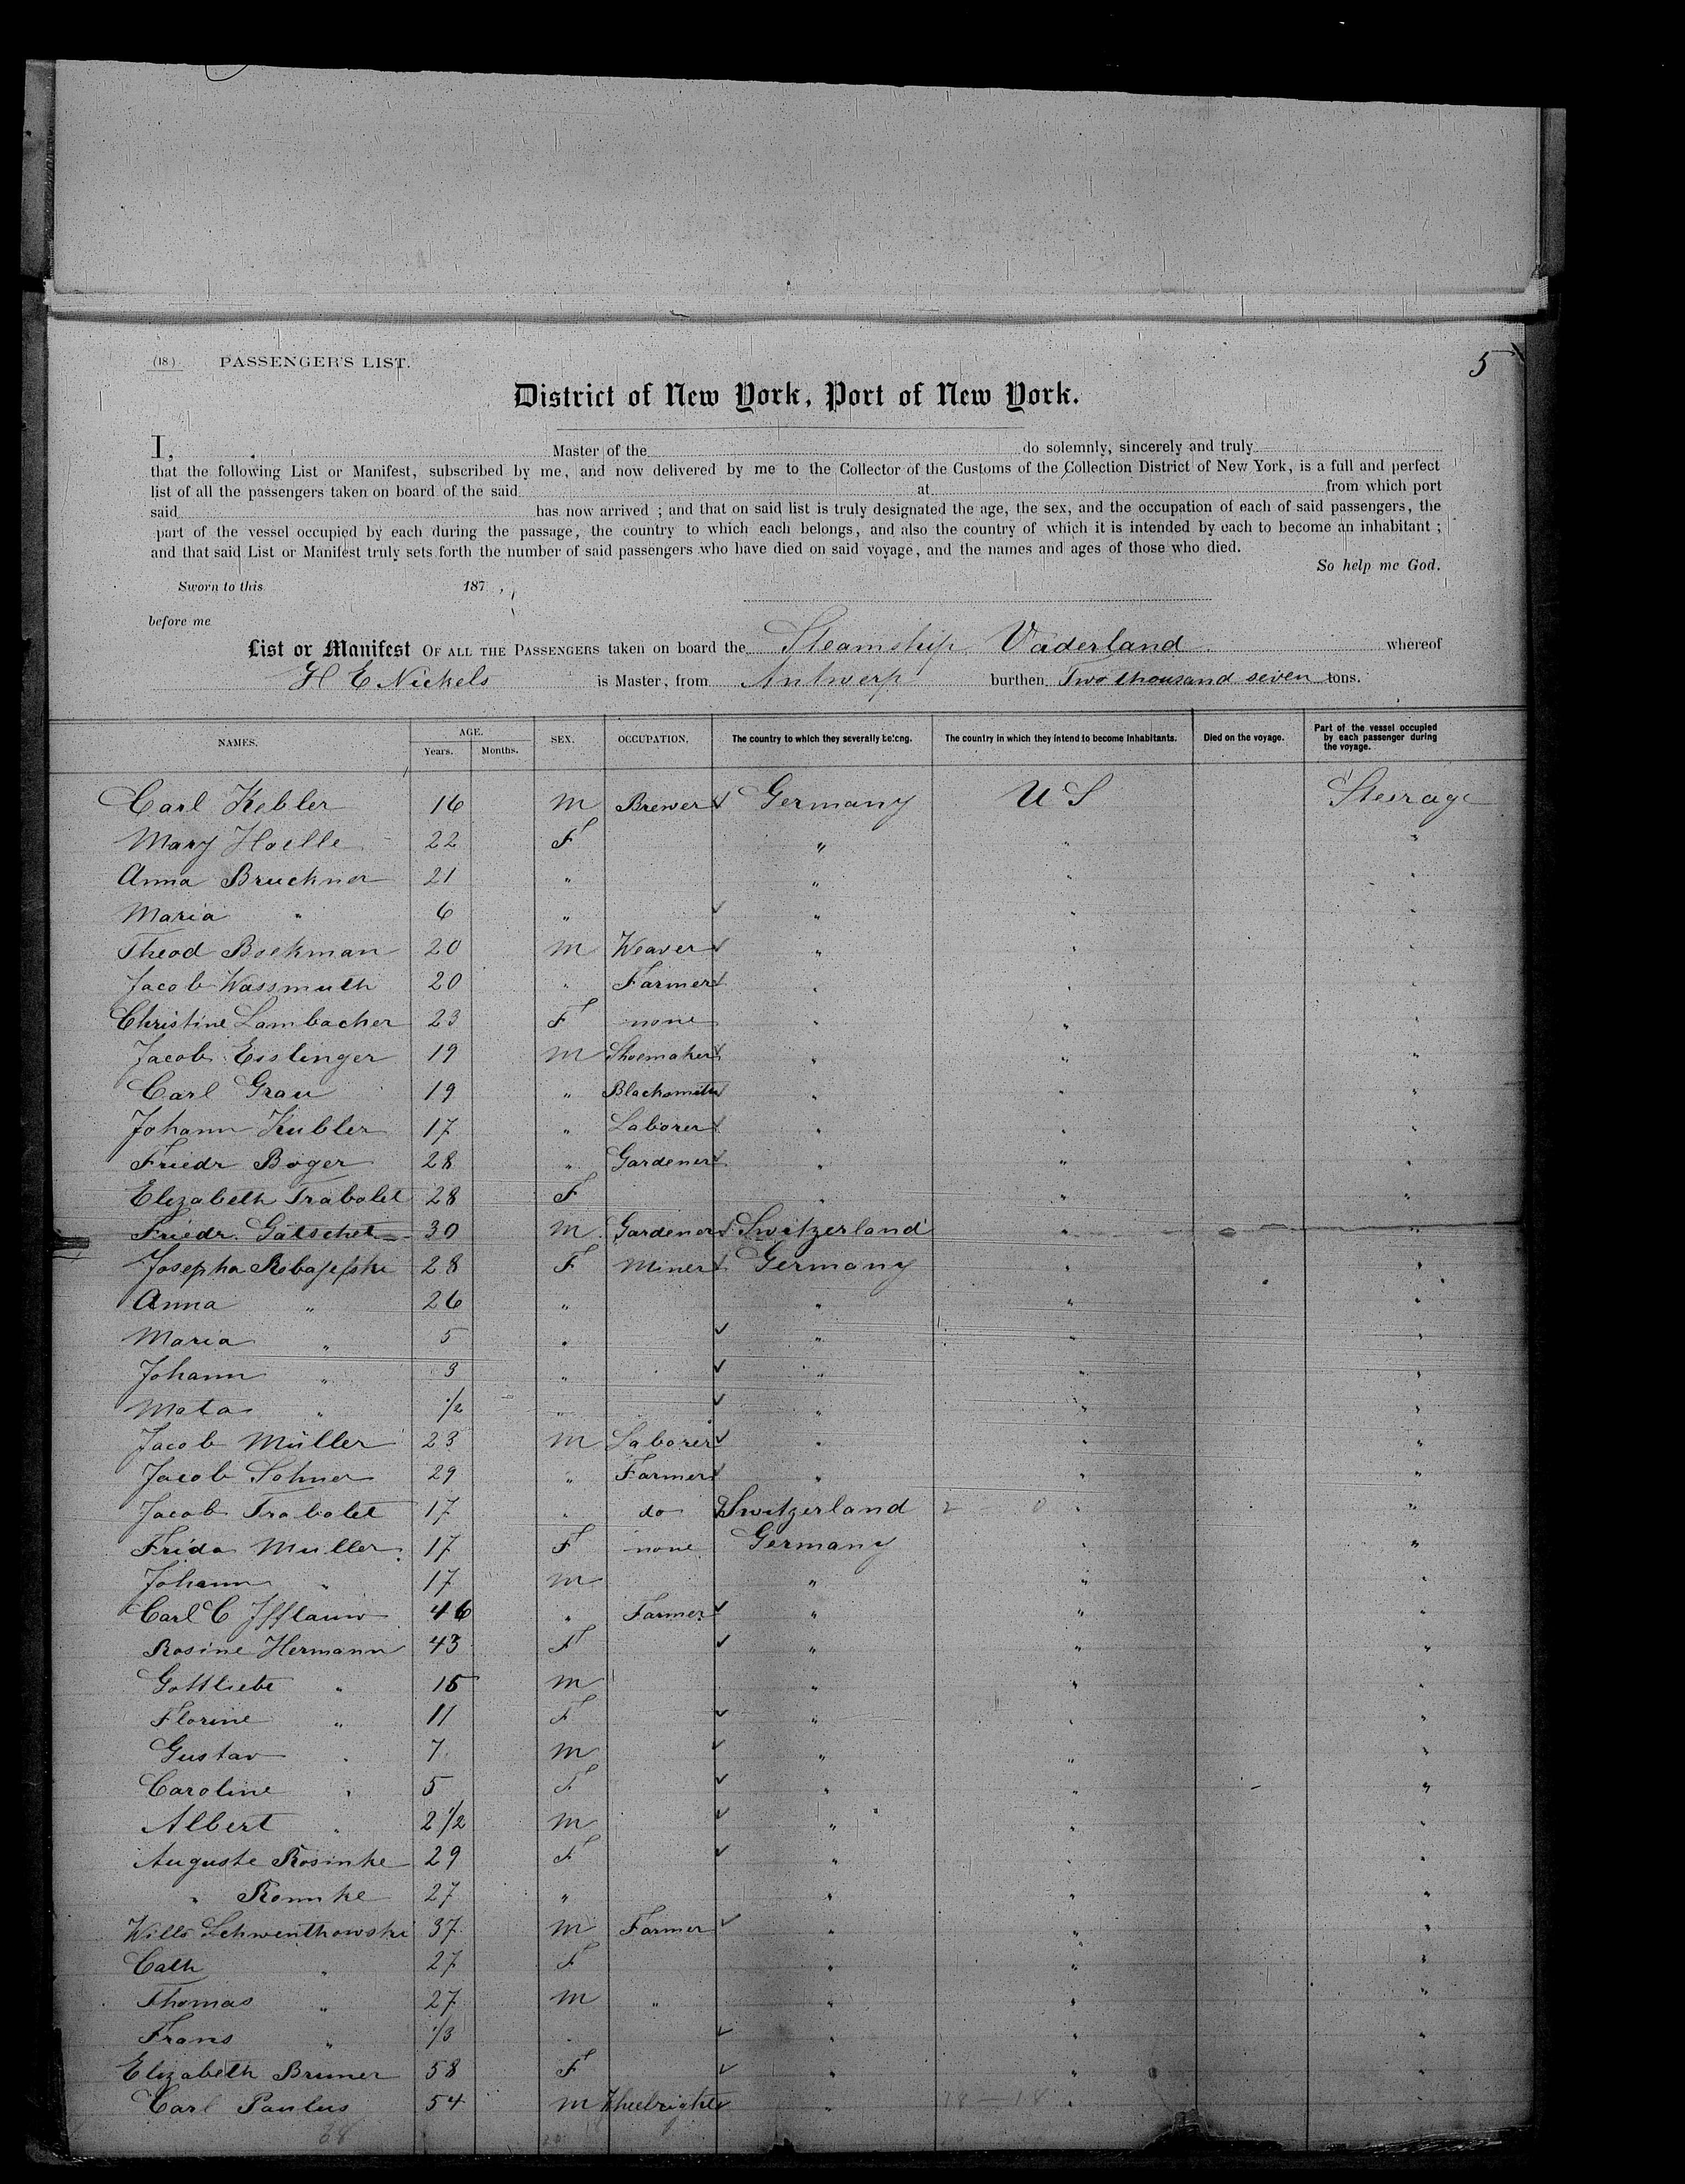 (18) PASSENGER'S LIST. 5
District of New York, Port of New York.
I, Master of the do solemnly, sincerely and truly
that the following List or Manifest, subscribed by me, and now delivered by me to the Collector of the Customs of the Collection District of New York, is a full and perfect
list of all the passengers taken on board of the said at from which port
said has now arrived ; and that on said list is truly designated the age, the sex, and the occupation of each of said passengers, the
part of the vessel occupied by each during the passage, the country to which each belongs, and also the country of which it is intended by each to become an inhabitant ;
and that said List or Manifest truly sets forth the number of said passengers who have died on said voyage, and the names and ages of those who died.
So help me God.
Sworn to this 187 ,
before me
List or Manifest OF ALL THE PASSENGERS taken on board the Steamship Vaderland whereof
H E Nickels is Master, from Antwerp burthen Two thousand seven tons.
NAMES. AGE. Years. Months. SEX. OCCUPATION. The country to which they severally belong. The country in which they intend to become inhabitants. Died on the voyage. Part of the vessel occupied by each passenger during the voyage.
Carl Kebler 16 M Brewer Germany U S Steerage
Mary Hoelle 22 F " " "
Anna Bruckner 21 " " " "
Maria " 6 " " " "
Theod Boekman 20 M Weaver " " "
Jacob Wassmuth 20 " Farmer " " "
Christine Lambacher 23 F none " " "
Jacob Eisslinger 19 M Shoemaker " " "
Carl Grau 19 " Blacksmith " " "
Johann Kubler 17 " Laborer " " "
Friedr Böger 28 " Gardener " " "
Elizabeth Trabolet 28 F " " "
Friedr. Gätschet 30 M Gardener Switzerland " "
Josepha 28 F Miner Germany " "
Anna " 26 " " " "
Maria " 5 " " " "
Johann " 3 " " " "
Mata " 1/2 " " " "
Jacob Müller 23 M Laborer " " "
Jacob Sohner 29 " Farmer " " "
Jacob Trabolet 17 " do Switzerland " "
Frida Muller 17 F none Germany " "
Johann " 17 M " " "
Carl C Ifflauw 46 " Farmer " " "
Rosine Hermann 43 F " " "
Gottliebe " 15 M " " "
Florine " 11 F " " "
Gustav " 7 M " " "
Caroline " 5 F " " "
Albert " 2 1/2 M " " "
Auguste Rosinke 29 F " " "
" Romike 27 " " " "
Willo Schwenthowski 37 M Farmer " " "
Cath " 27 F " " "
Thomas " 27 M " " " "
Frans " 1/3 " " " "
Elizabeth Bruner 58 F " " "
Carl Paulus 54 M Wheelright " " "
68